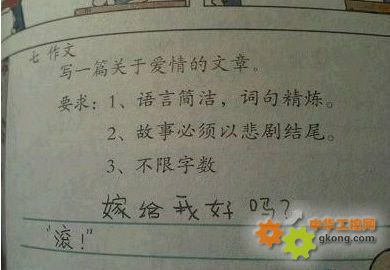 七 作文
写一篇关于爱情的文章。
要求：1、语言简洁，词句精炼。
2、故事必须以悲剧结尾。
3、不限字数
嫁给我好吗？
“滚！”
中华工控网
gkong.com